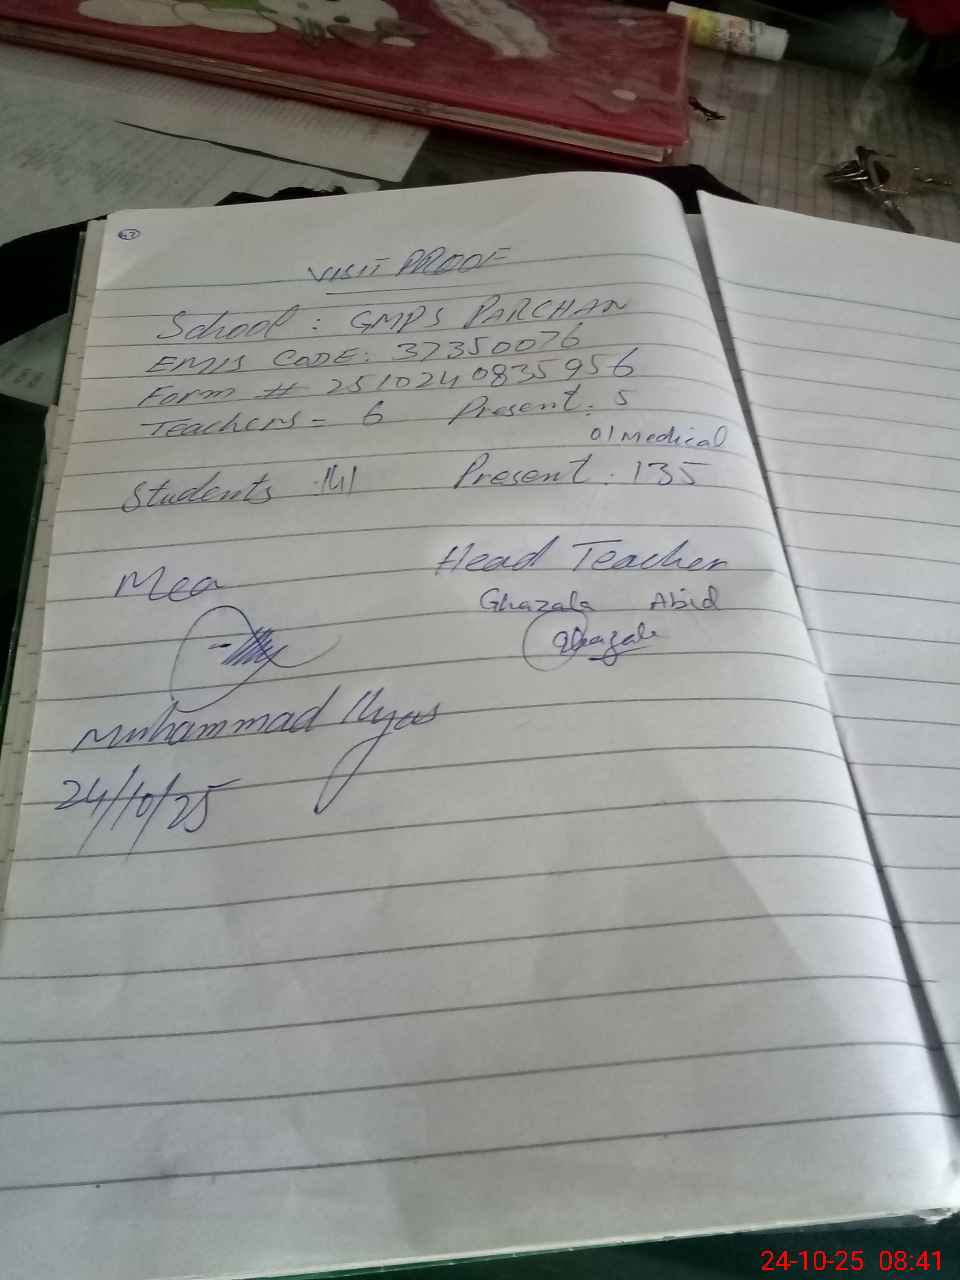 43
VISIT PROOF
School : GMPS PARCHAN
EMIS CODE: 37350076
Form # 2510240835956
Teachers = 6 Present: 5
01 Medical
Students 141 Present : 135
Mea Head Teacher
Ghazala Abid
Ghazala
Muhammad Ilyas
24/10/25
24-10-25 08:41